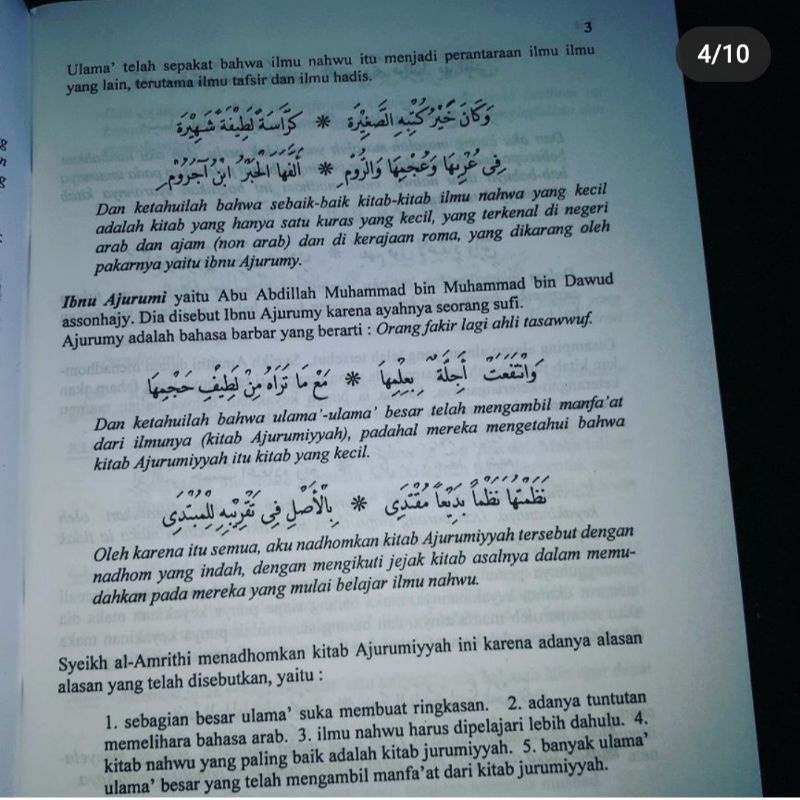 4/10
3
Ulama' telah sepakat bahwa ilmu nahwu itu menjadi perantaraan ilmu ilmu
yang lain, terutama ilmu tafsir dan ilmu hadis.
وَكَانَ خَيْرُ كُتْبِهِ الصَّغِيْرَةِ * كُرَّاسَةً لَطِيْفَةً شَهِيْرَةً
فِى عُرْبِهَا وَعُجْمِهَا وَالرُّوْمِ * أَلَّفَهَا الْحَبْرُ ابْنُ آجُرُّوْمِ
Dan ketahuilah bahwa sebaik-baik kitab-kitab ilmu nahwa yang kecil
adalah kitab yang hanya satu kuras yang kecil, yang terkenal di negeri
arab dan ajam (non arab) dan di kerajaan roma, yang dikarang oleh
pakarnya yaitu ibnu Ajurumy.
Ibnu Ajurumi yaitu Abu Abdillah Muhammad bin Muhammad bin Dawud
assonhajy. Dia disebut Ibnu Ajurumy karena ayahnya seorang sufi.
Ajurumy adalah bahasa barbar yang berarti : Orang fakir lagi ahli tasawwuf.
وَانْتَفَعَتْ أَجِلَّةٌ بِعِلْمِهَا * مَعْ مَا تَرَاهُ مِنْ لَطِيْفِ حَجْمِهَا
Dan ketahuilah bahwa ulama'-ulama' besar telah mengambil manfa'at
dari ilmunya (kitab Ajurumiyyah), padahal mereka mengetahui bahwa
kitab Ajurumiyyah itu kitab yang kecil.
نَظَمْتُهَا نَظْمًا بَدِيْعًا مُقْتَدِى * بِالْأَصْلِ فِى تَقْرِيْبِهِ لِلْمُبْتَدِى
Oleh karena itu semua, aku nadhomkan kitab Ajurumiyyah tersebut dengan
nadhom yang indah, dengan mengikuti jejak kitab asalnya dalam memu-
dahkan pada mereka yang mulai belajar ilmu nahwu.
Syeikh al-Amrithi menadhomkan kitab Ajurumiyyah ini karena adanya alasan
alasan yang telah disebutkan, yaitu :
1. sebagian besar ulama' suka membuat ringkasan. 2. adanya tuntutan
memelihara bahasa arab. 3. ilmu nahwu harus dipelajari lebih dahulu. 4.
kitab nahwu yang paling baik adalah kitab jurumiyyah. 5. banyak ulama'
ulama' besar yang telah mengambil manfa'at dari kitab jurumiyyah.